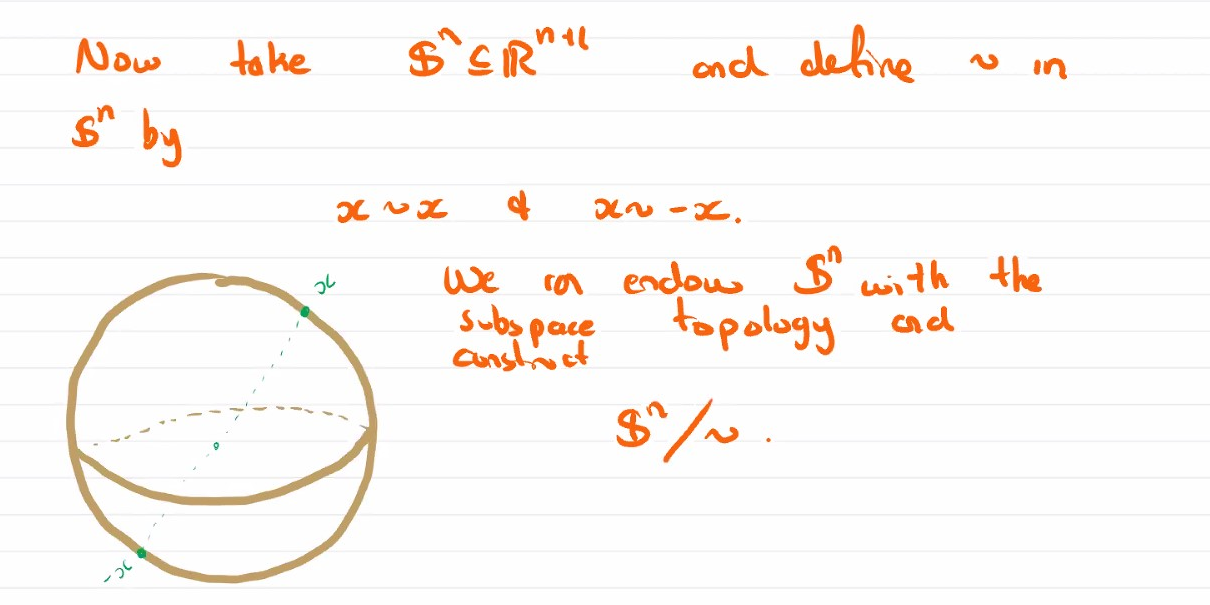 Now take $ⁿ ⊆ ℝⁿ⁺¹ and define ~ in
$ⁿ by
x ~ x & x ~ -x.
x
We can endow $ⁿ with the
subspace topology and
construct
$ⁿ/~ .
-x